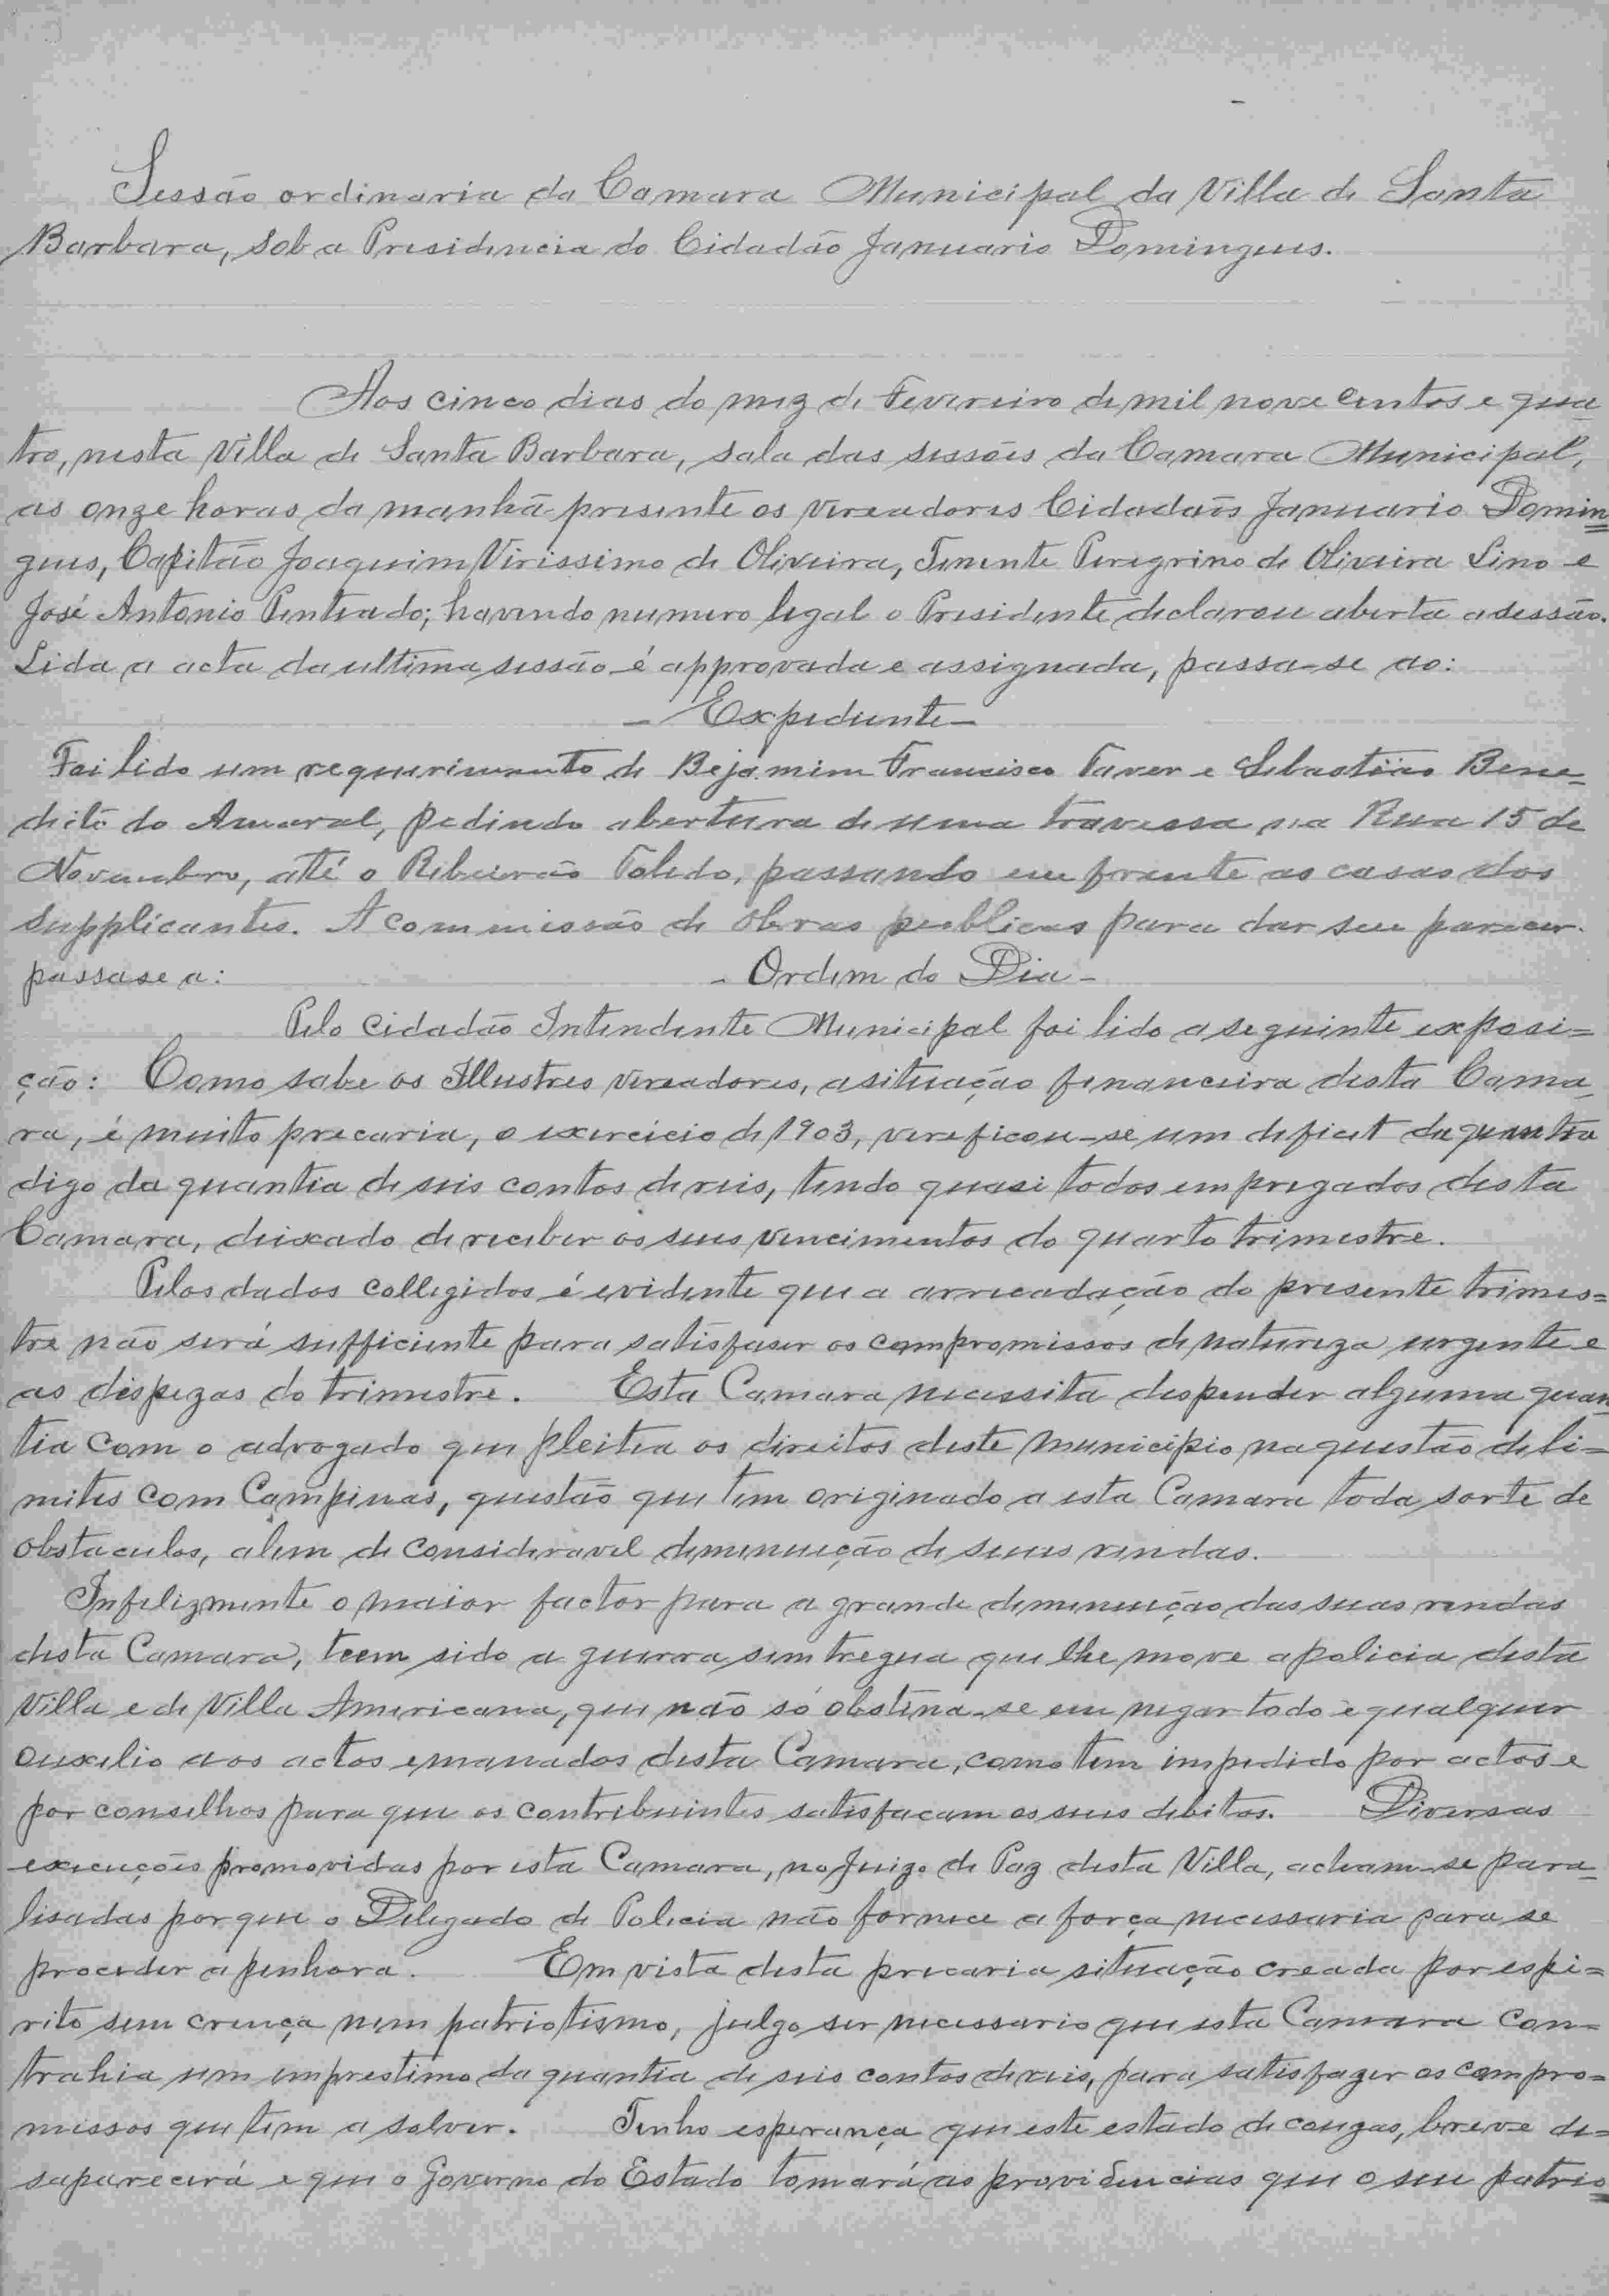 Sessão ordinaria da Camara Municipal da Villa de Santa
Barbara, sob a Presidencia do Cidadão Januario Domingues.
Aos cinco dias do mez de Fevereiro de mil nove centos e qua
tro, nesta Villa de Santa Barbara, sala das sessões da Camara Municipal,
as onze horas da manhã presente os vereadores Cidadaõs Januario Domin
gues, Capitão Joaquim Virissimo de Oliveira, Tenente Peregrino de Oliveira Lino e
José Antonio Penteado; havendo numero legal o Presidente declarou aberta a sessão.
Lida a acta da ultima sessão é approvada e assignada, passa-se ao:
- Expediente -
Foi lido um requerimento de Bejamim Francisco Faver e Sebastião Bene=
dito do Amaral, pedindo abertura de uma travessa na Rua 15 de
Novembro, até o Ribeirão Toledo, passando em frente as casas dos
Supplicantes. A commissão de obras publicas para dar seu parecer.
passase a: - Ordem do Dia -
Pelo Cidadão Intendente Municipal foi lido a seguinte exposi=
ção: Como sabe os Illustres vereadores, a situação financeira desta Cama
ra, é muito precaria, o exercicio de 1903, vereficou-se um deficit da quantia
digo da quantia de seis contos de reis, tendo quasi todos empregados desta
Camara, deixado de receber os seus vencimentos do quarto trimestre.
Pelos dados collegidos é evidente que a arrecadação do presente trimes=
tre não será sufficiente para satisfaser os compromissos de natureza urgente e
as despezas do trimestre. Esta Camara necessita despender alguma quan
tia com o advogado que pleitea os direitos deste Municipio na questão de li=
mites com Campinas, questão que tem originado a esta Camara toda sorte de
obstaculos, alem de consideravel demenuição de suas rendas.
Infelizmente o maior factor para a grande demenuição das suas rendas
desta Camara, teem sido a guerra sem tregua que lhe move a policia desta
Villa e de Villa Americana, que não só obstina-se em negar todo e qualquer
auxilio aos actos emanados desta Camara, como tem impedido por actos e
por conselhos para que os contribuintes satisfacam os seus debitos. Diversas
execuções promovidas por esta Camara, no Juizo de Paz desta Villa, acham-se para
lisadas por que o Delegado de Policia não fornece a força necessaria para se
proceder a penhora. Em vista desta precaria situação creada por espi=
rito sem crença nem patriotismo, julgo ser necessario que esta Camara con=
trahia um emprestimo da quantia de seis contos de reis, para satisfazer os compro=
missos que tem a solver. Tenho esperança que este estado de couzas, breve de=
saparecerá e que o Governo do Estado tomará as providencias que o seu patrio